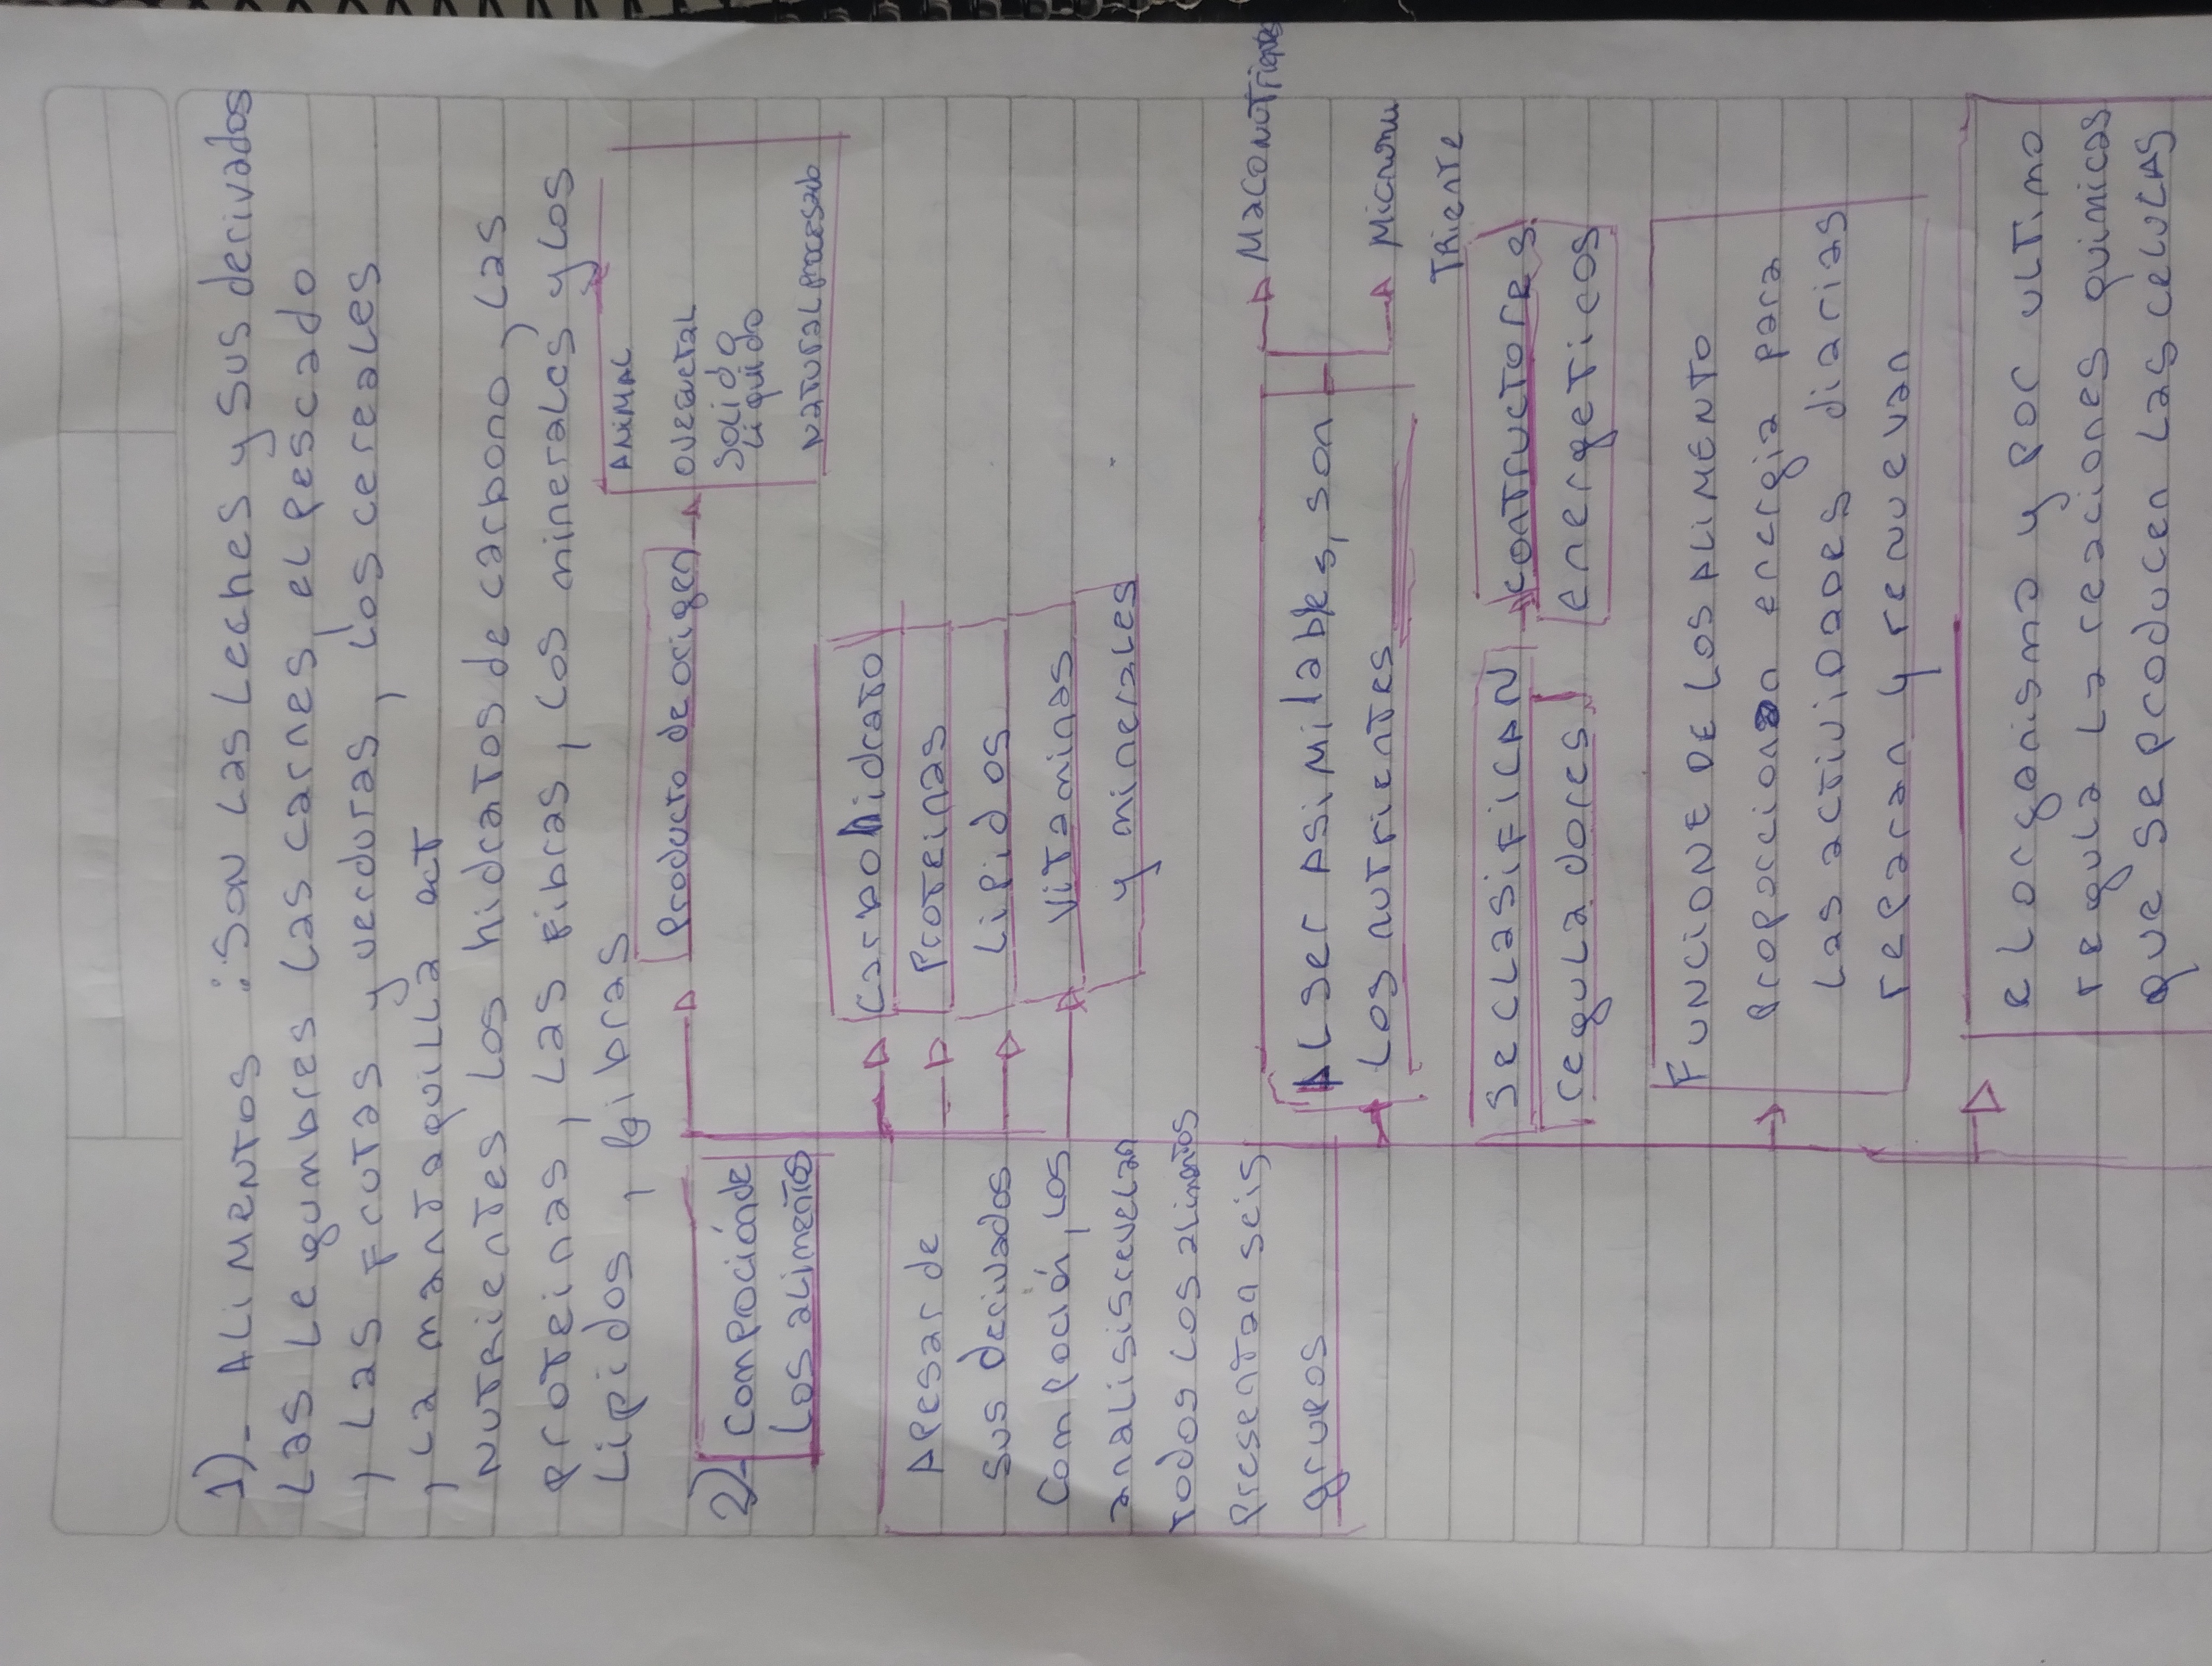 1)- ALiMENTOS :Son Las Leches y sus derivados
Las Legumbres Las carnes, el Pescado
, Las Frutas y verduras, Los cereales
, La mantaquilla act
Nutrientes Los hidratos de carbono, Las
Proteinas, Las Fibras, Los minerales y Los
Lipidos, Fibras
Producto de origen
ANiMAL
OVEGETAL
SOLido
Liquido
NaTuraL Procesado
2)- Comproción de
Los alimentos
Apesar de
Sus derivados
Compoción, Los
analisis revelan
Todos Los alimentos
Presentan seis
grupos
Carbohidrato
Proteinas
Lipidos
Vitaminas
y minerales
ALser Asimilables, son
Los nutrientes
Maconutrientes
Micronu
Triente
Se CLASiFiCAN
reguladores
Contructores
energeticos
FUNCIONE DE LOS ALIMENTO
Proporciona energia para
Las activiDades diarias
reparan y renuevan
eLorganismo y por ultimo
regula La reaciones quimicas
que se producen Las celulas